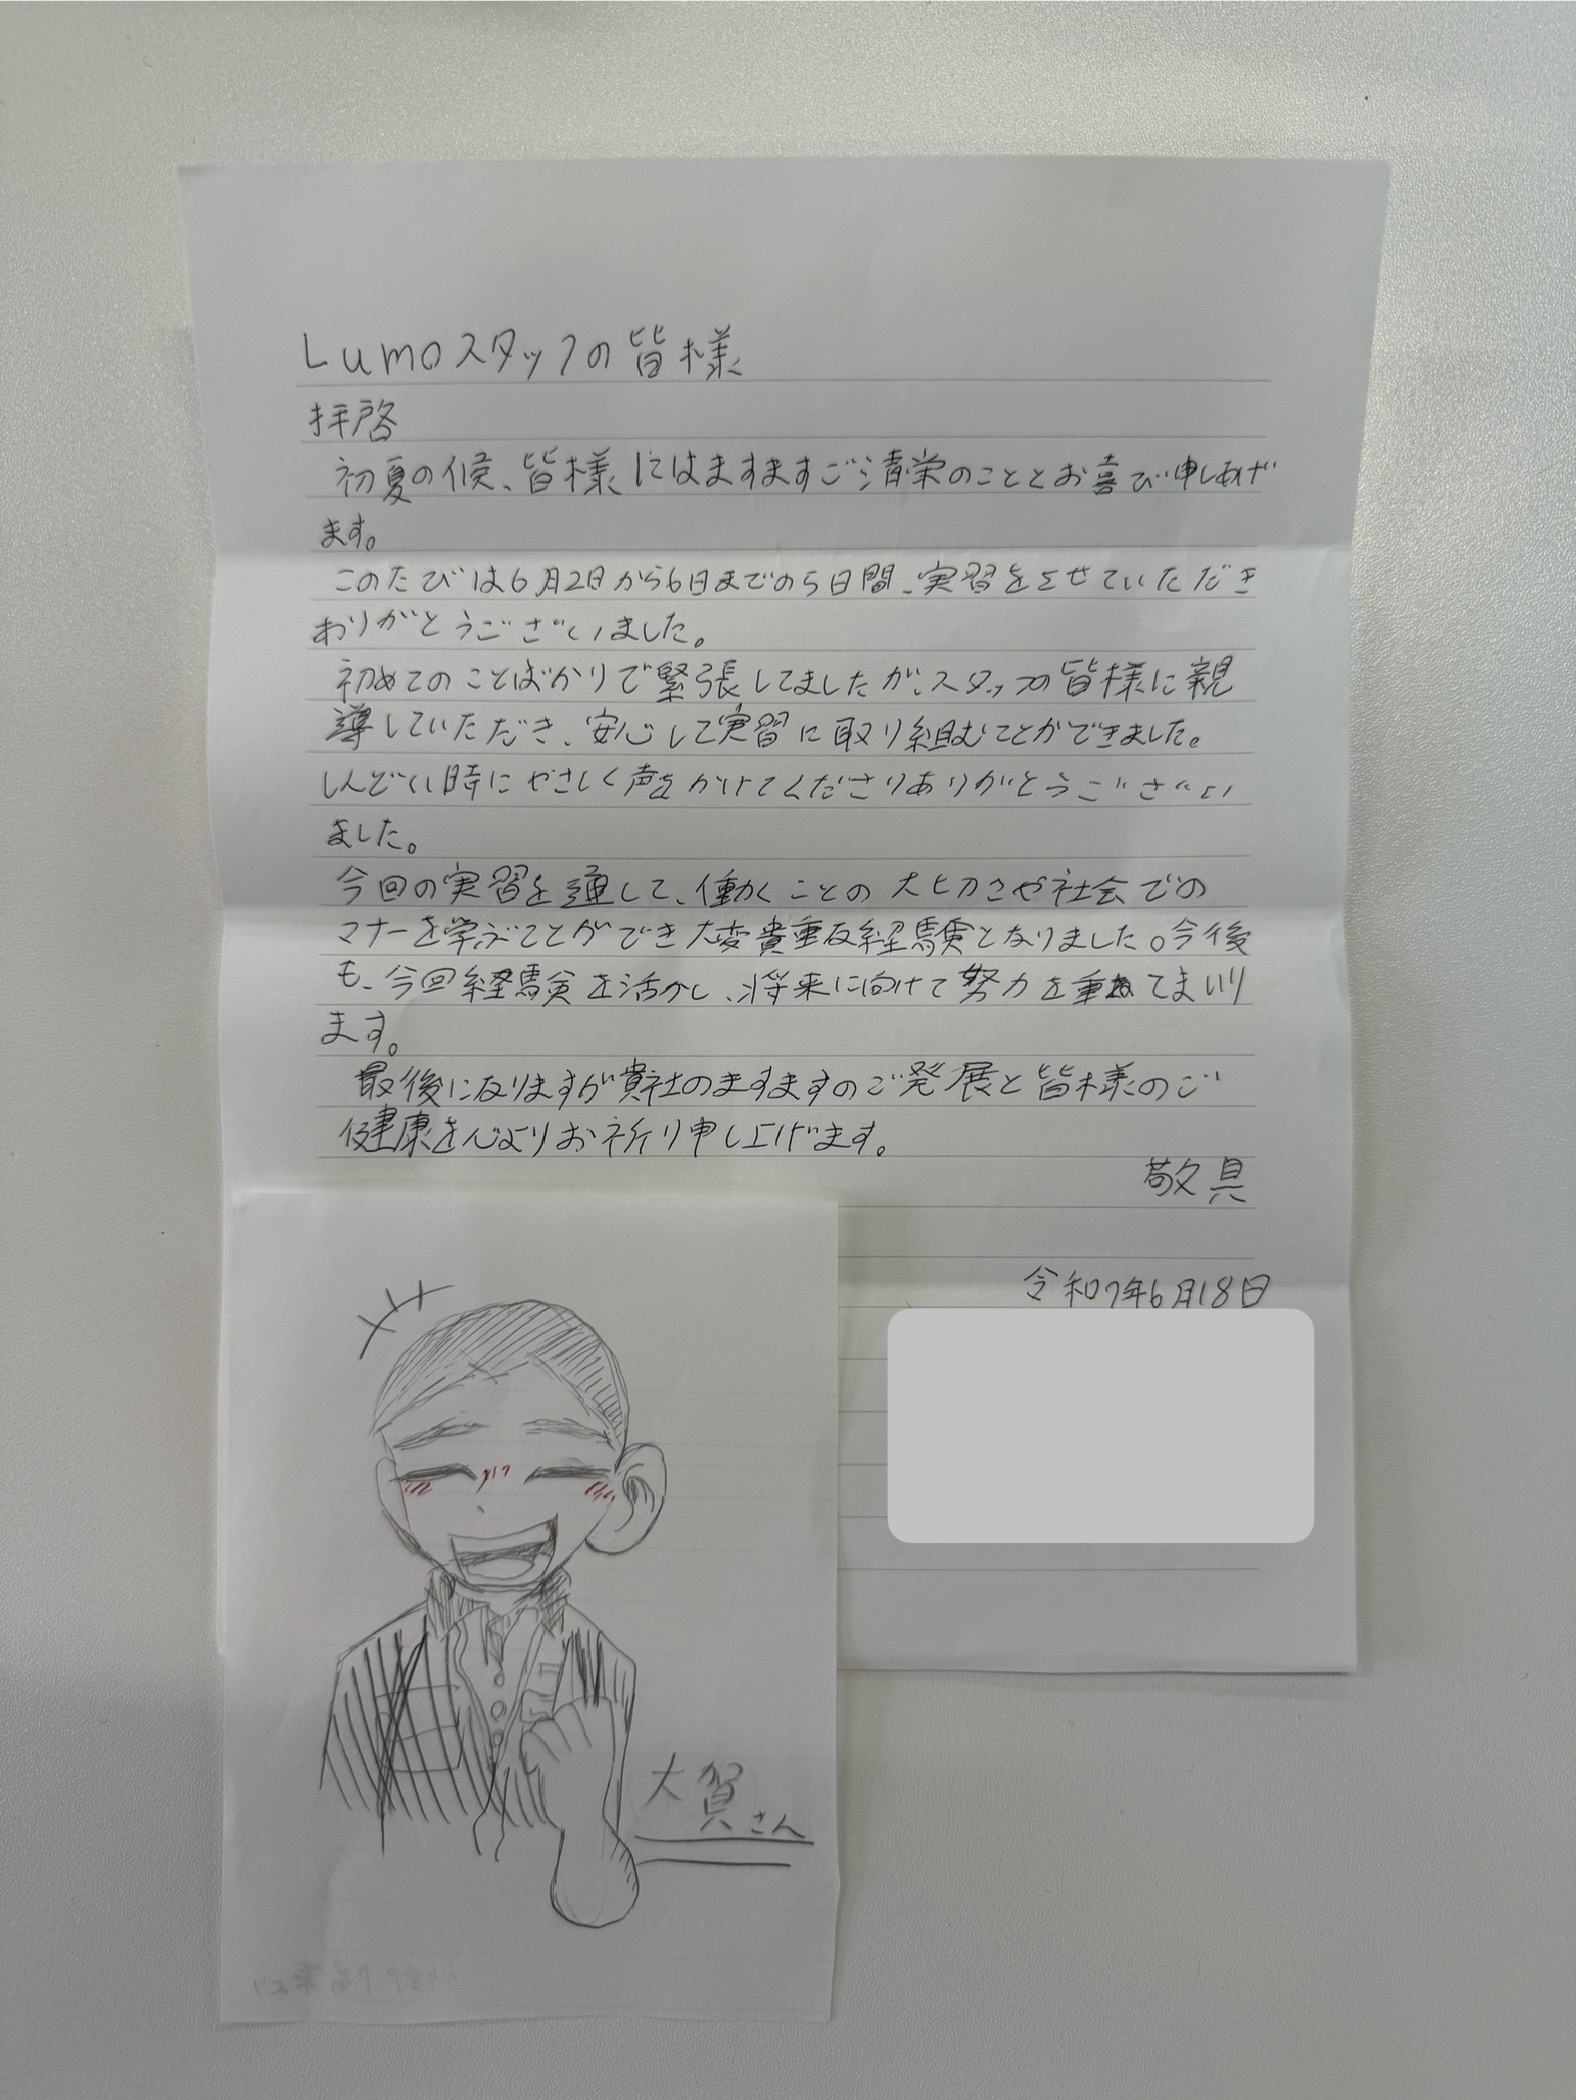 Lumoスタッフの皆様
拝啓
初夏の候、皆様にはますますご清栄のこととお喜び申しあげ
ます。
このたびは6月2日から6日までの5日間、実習をさせていただき
ありがとうございました。
初めてのことばかりで緊張してましたが、スタッフの皆様に親
導していただき、安心して実習に取り組むことができました。
しんどい時にやさしく声をかけてくださりありがとうござい
ました。
今回の実習を通して、働くことの大切さや社会での
マナーを学ぶことができ大変貴重な経験となりました。今後
も、今回経験を活かし、将来に向けて努力を重ねてまいり
ます。
最後になりますが貴社のますますのご発展と皆様のご
健康を心よりお祈り申し上げます。
敬具
令和7年6月18日
大賀さん